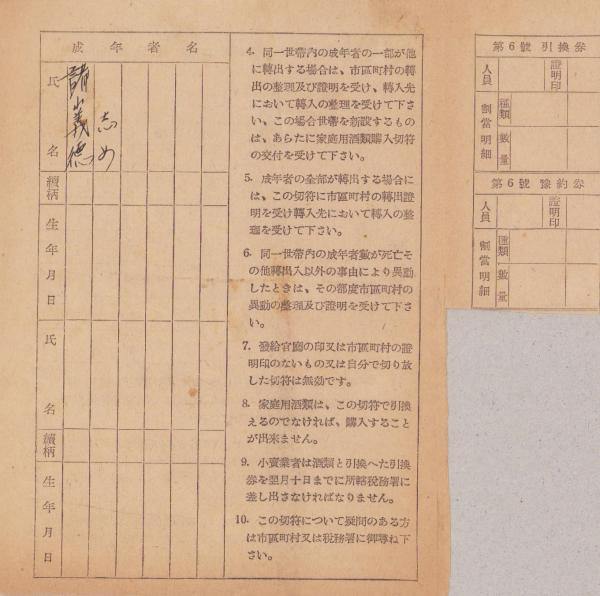 成年者名
氏名
續柄
生年月日
氏名
續柄
生年月日
義德
志め
4. 同一世帶内の成年者の一部が他
に轉出する場合は、市區町村の轉
出の整理及び證明を受け、轉入先
において轉入の整理を受けて下さ
い、この場合世帶を新設するもの
は、あらたに家庭用酒類購入切符
の交付を受けて下さい。
5. 成年者の全部が轉出する場合に
は、この切符に市區町村の轉出證
明を受け轉入先において轉入の整
理を受けて下さい。
6. 同一世帶内の成年者數が死亡そ
の他轉出入以外の事由により異動
したときは、その都度市區町村の
異動の整理及び證明を受けて下さ
い。
7. 發給官廳の印又は市區町村の證
明印のないもの又は自分で切り放
した切符は無効です。
8. 家庭用酒類は、この切符で引換
えるのでなければ、購入すること
が出來ません。
9. 小賣業者は酒類と引換へた引換
券を翌月十日までに所轄税務署に
差し出さなければなりません。
10. この切符について疑問のある方
は市區町村又は税務署に御尋ね下
さい。
第6號引換券
人員
證明印
割當明細
種類
數量
第6號豫約券
人員
證明印
割當明細
種類
數量